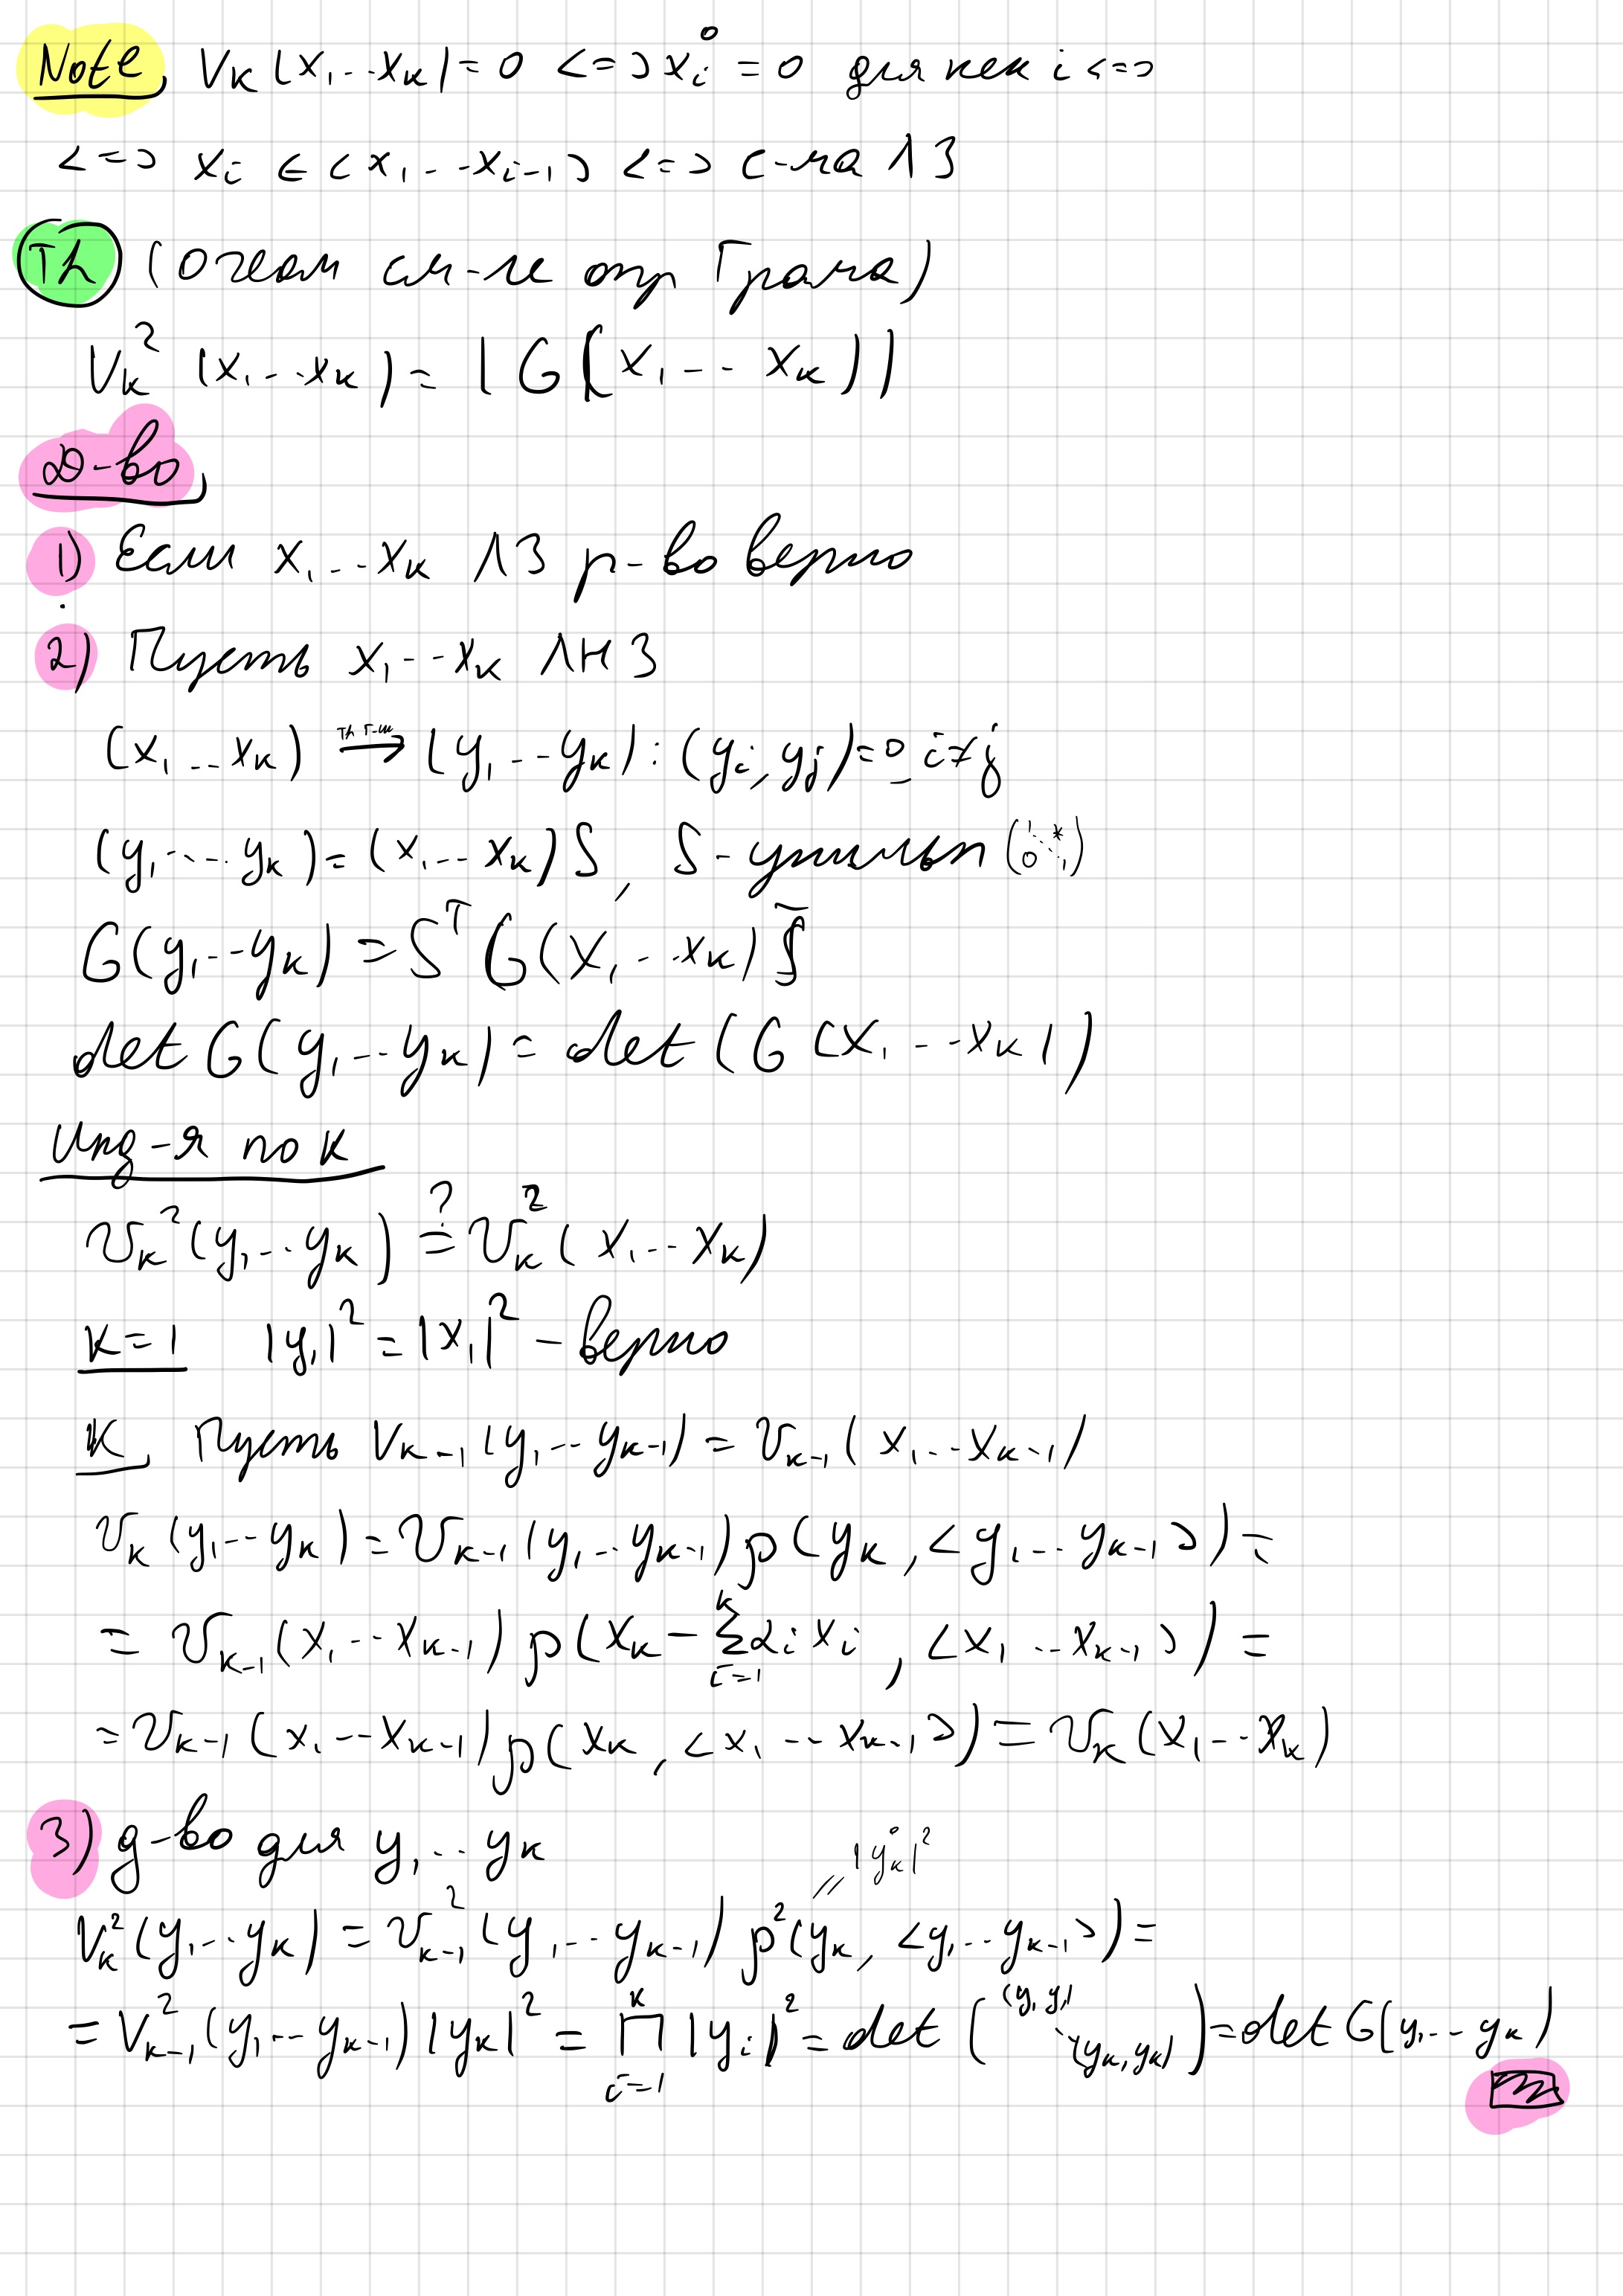 Note, Vₖ(x₁...xₖ)=0 <=> x̊ᵢ=0 для нек i <=>
<=> xᵢ ∈ <x₁...xᵢ₋₁> <=> с-ма ЛЗ
Th (О геом см-ле опр Грама)
Vₖ² (x₁...xₖ) = |G(x₁...xₖ)|
Д-во,
1) Если x₁...xₖ ЛЗ р-во верно
2) Пусть x₁...xₖ ЛНЗ
(x₁...xₖ) —Th Г-Ш→ (y₁...yₖ) : (yᵢ, yⱼ)=0, i≠j
(y₁...yₖ) = (x₁...xₖ)S, S-унимвп (1 * 0 1)
G(y₁...yₖ) = Sᵀ G(x₁...xₖ) S̄
det G(y₁...yₖ) = det (G(x₁...xₖ))
Инд-я по k
Vₖ²(y₁...yₖ) =? Vₖ²(x₁...xₖ)
k=1 |y₁|² = |x₁|² – верно
k, Пусть Vₖ₋₁(y₁...yₖ₋₁) = Vₖ₋₁(x₁...xₖ₋₁)
Vₖ(y₁...yₖ) = Vₖ₋₁(y₁...yₖ₋₁) ρ(yₖ, <y₁...yₖ₋₁>) =
= Vₖ₋₁(x₁...xₖ₋₁) ρ(xₖ - ∑ᵢ₌₁ᵏ αᵢxᵢ, <x₁...xₖ₋₁>) =
= Vₖ₋₁(x₁...xₖ₋₁) ρ(xₖ, <x₁...xₖ₋₁>) = Vₖ(x₁...xₖ)
3) g-во для y₁...yₖ
// |ẙₖ|²
Vₖ²(y₁...yₖ) = Vₖ₋₁²(y₁...yₖ₋₁) ρ²(yₖ, <y₁...yₖ₋₁>) =
= Vₖ₋₁²(y₁...yₖ₋₁) |yₖ|² = ∏ᵢ₌₁ᵏ |yᵢ|² = det ((y₁ y₁) ⋱ (yₖ, yₖ)) = det G(y₁...yₖ)